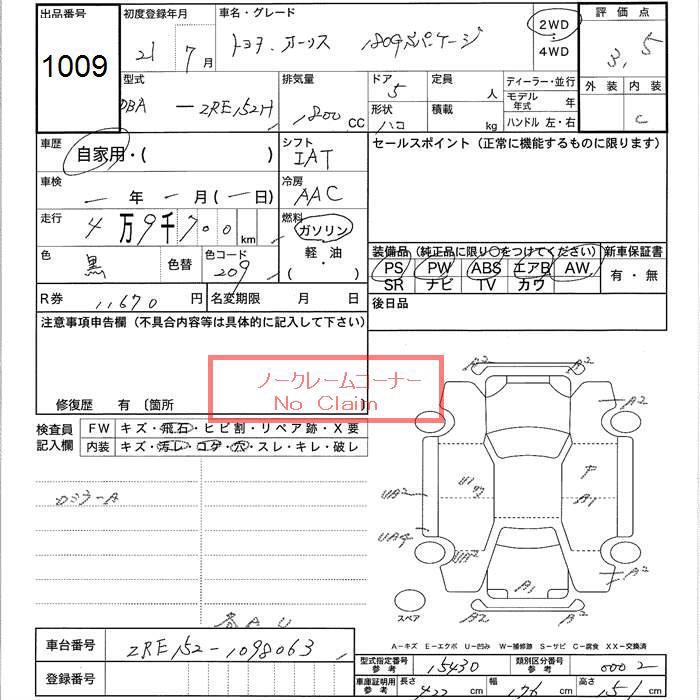 出品番号 初度登録年月 車名・グレード 評価点
1009 21年 7月 トヨタ オーリス 180G Sパッケージ 2WD・4WD 3.5
外装 内装
C
型式 排気量 ドア 定員 ディーラー・並行
DBA - ZRE152H 1800 CC 5 人 モデル年式 年
形状 積載
ハコ kg ハンドル 左・右
車歴 シフト セールスポイント (正常に機能するものに限ります)
自家用・( ) IAT
車検 冷房
一年 一月 (一日) AAC
走行 燃料
4万9千700km ガソリン
軽・油
( )
色 色替 色コード 装備品 (純正品に限り○をつけてください) 新車保証書
黒 209 PS PW ABS エアB AW 有・無
SR ナビ TV カワ
R券 11,670円 名変期限 月 日 後日品
注意事項申告欄 (不具合内容等は具体的に記入して下さい)
ノークレームコーナー
No Claim
修復歴 有 〔箇所
検査員記入欄 FW キズ・飛石・ヒビ割・リペア跡・X要
内装 キズ・汚レ・コゲ・穴・スレ・キレ・破レ
A2 A2
A2
UA2 U1 ワク F A1
UA4 UA2 A2
A1
A2 A2
スペア
A-キズ E-エクボ U-凹み W-補修跡 S-サビ C-腐食 XX-交換済
車台番号 ZRE152-1098063
型式指定番号参考 15430 類別区分番号参考 0002
登録番号
車庫証明用参考 長さ 422 cm 幅 176 cm 高さ 151 cm